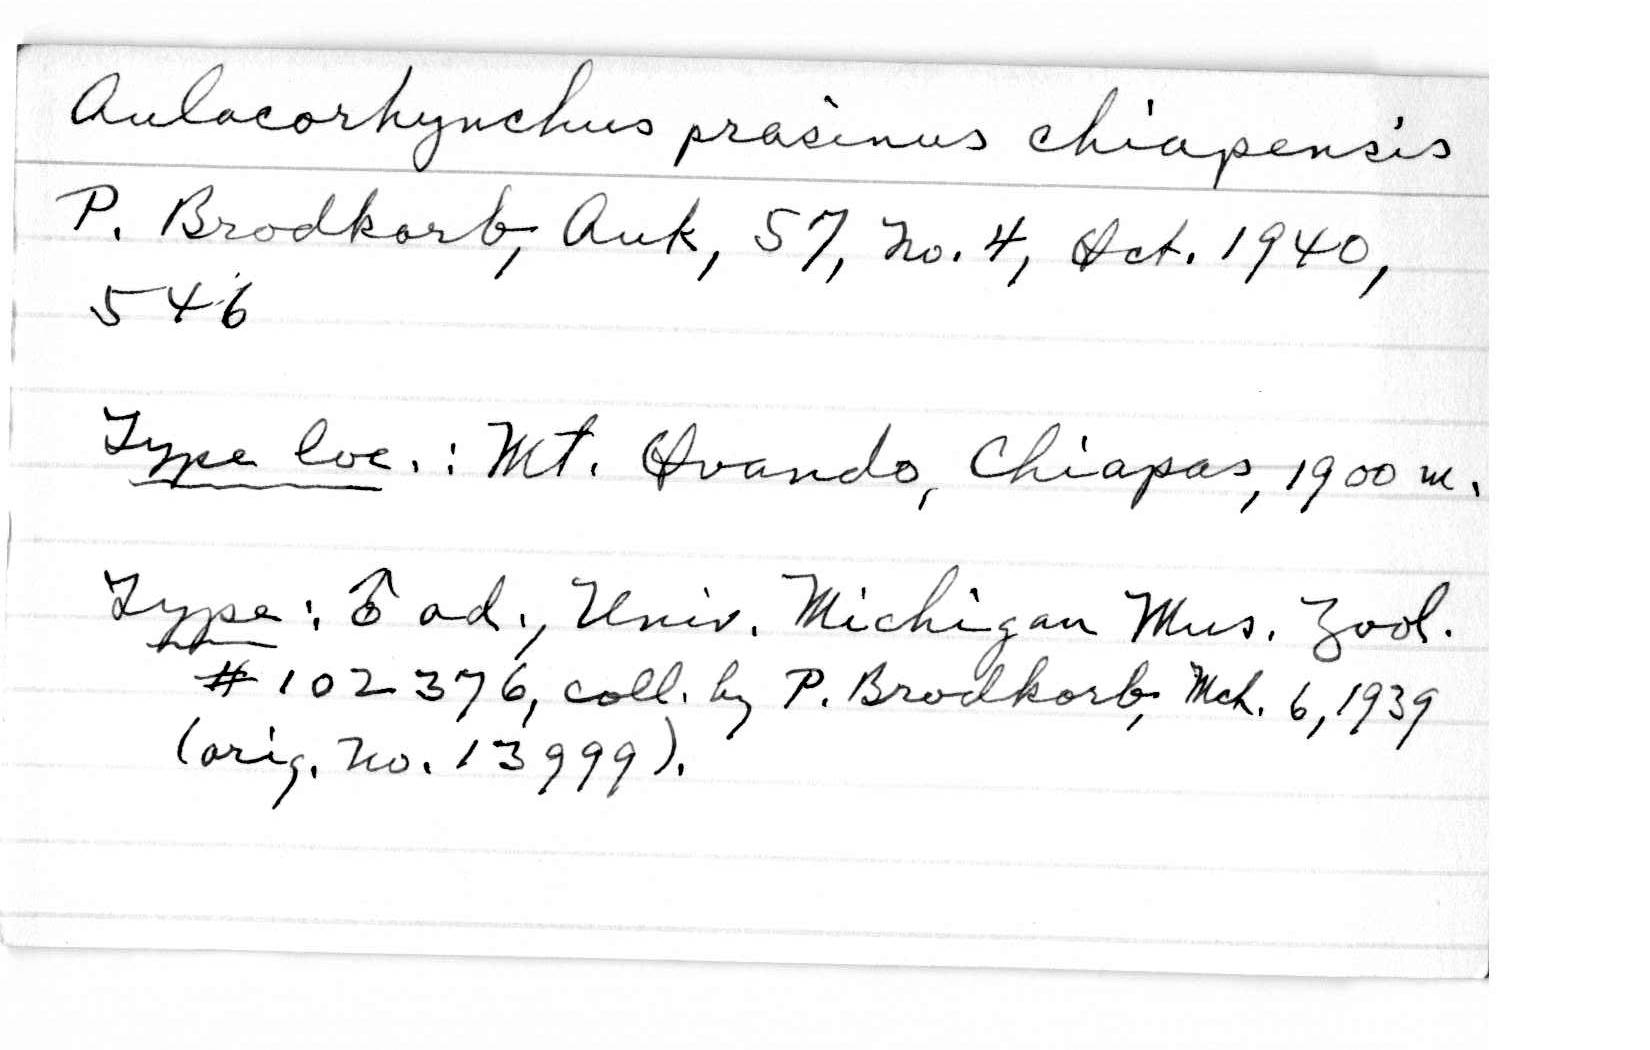 Aulacorhynchus prasinus chiapensis
P. Brodkorb, Auk, 57, No. 4, Oct. 1940,
546
Type loc.: Mt. Ovando, Chiapas, 1900 m.
Type: ♂ ad., Univ. Michigan Mus. Zool.
# 102376, coll. by P. Brodkorb, Mch. 6, 1939
(orig. no. 13999).